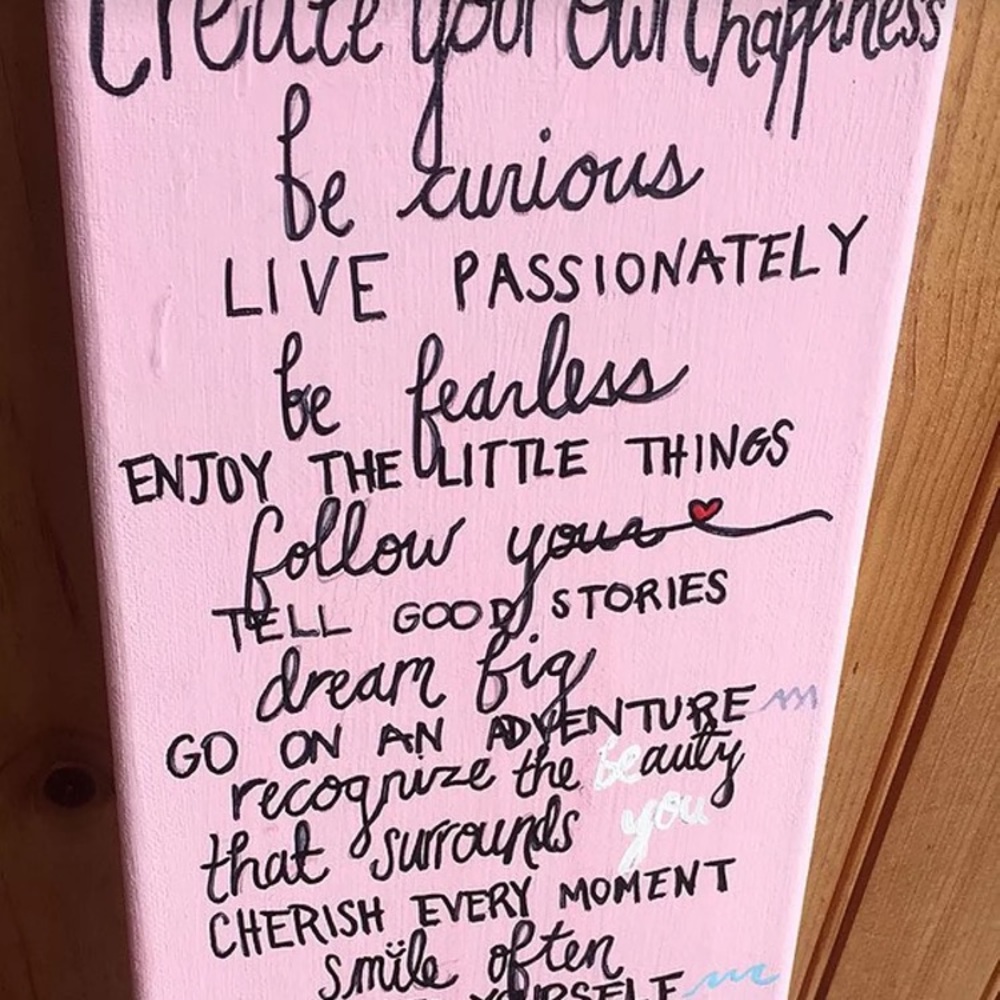 Create your own happiness
be curious
LIVE PASSIONATELY
be fearless
ENJOY THE LITTLE THINGS
follow your
TELL GOOD STORIES
dream big
GO ON AN ADVENTURE
recognize the beauty
that surrounds you
CHERISH EVERY MOMENT
smile often
YOURSELF